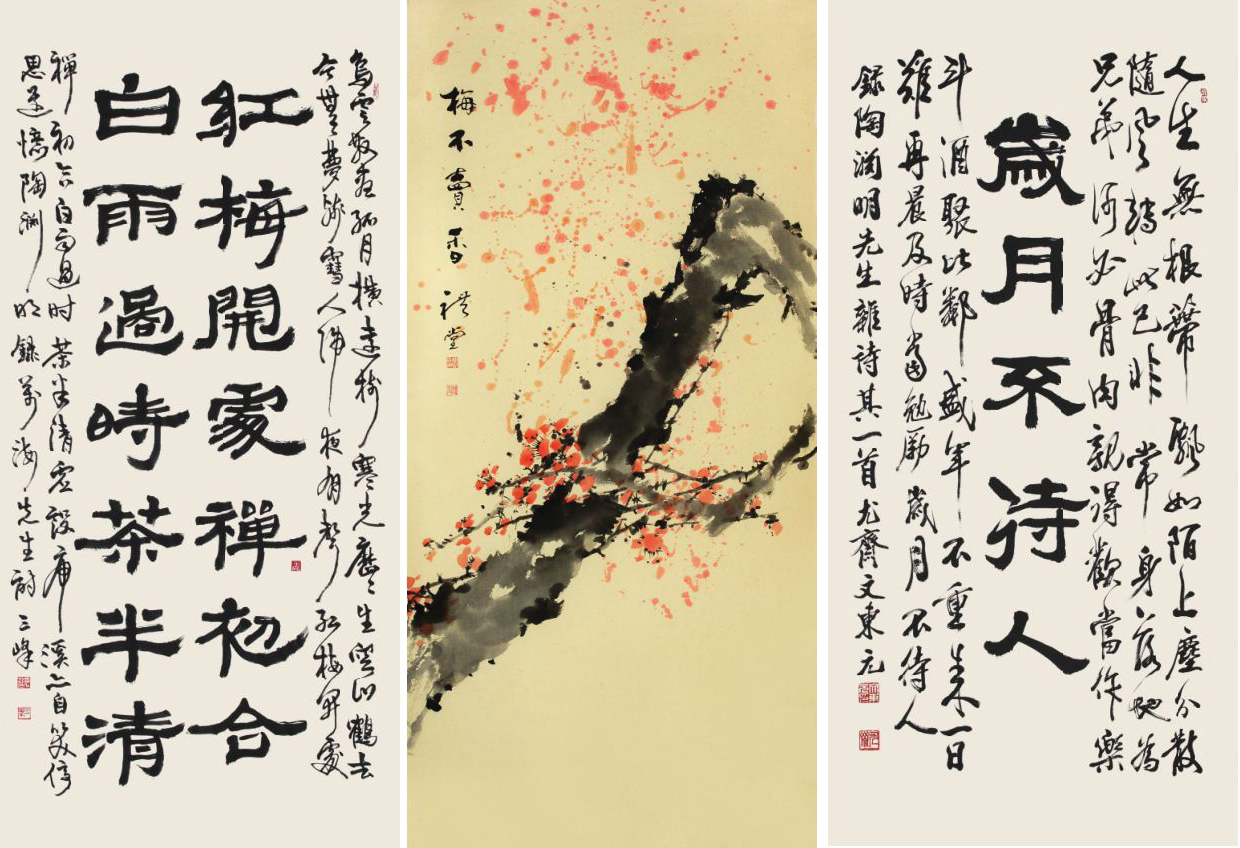 烏雲散盡孤月橫遠樹寒光歷歷生空山鶴去
今無夢殘雪人歸夜有聲紅梅開處
紅梅開處禪初合
白雨過時茶半清
禪初合白雨過時茶半清虛設虎溪亦自笑停
思還憶陶淵明錄萬海先生詩三峰
梅不賣香
禮堂
人生無根蒂飄如陌上塵分散
隨風轉此已非常身落地為
兄弟何必骨肉親得歡當作樂
歲月不待人
斗酒聚比鄰盛年不重來一日
難再晨及時當勉勵歲月不待人
錄陶淵明先生雜詩其一首尤齋文東元